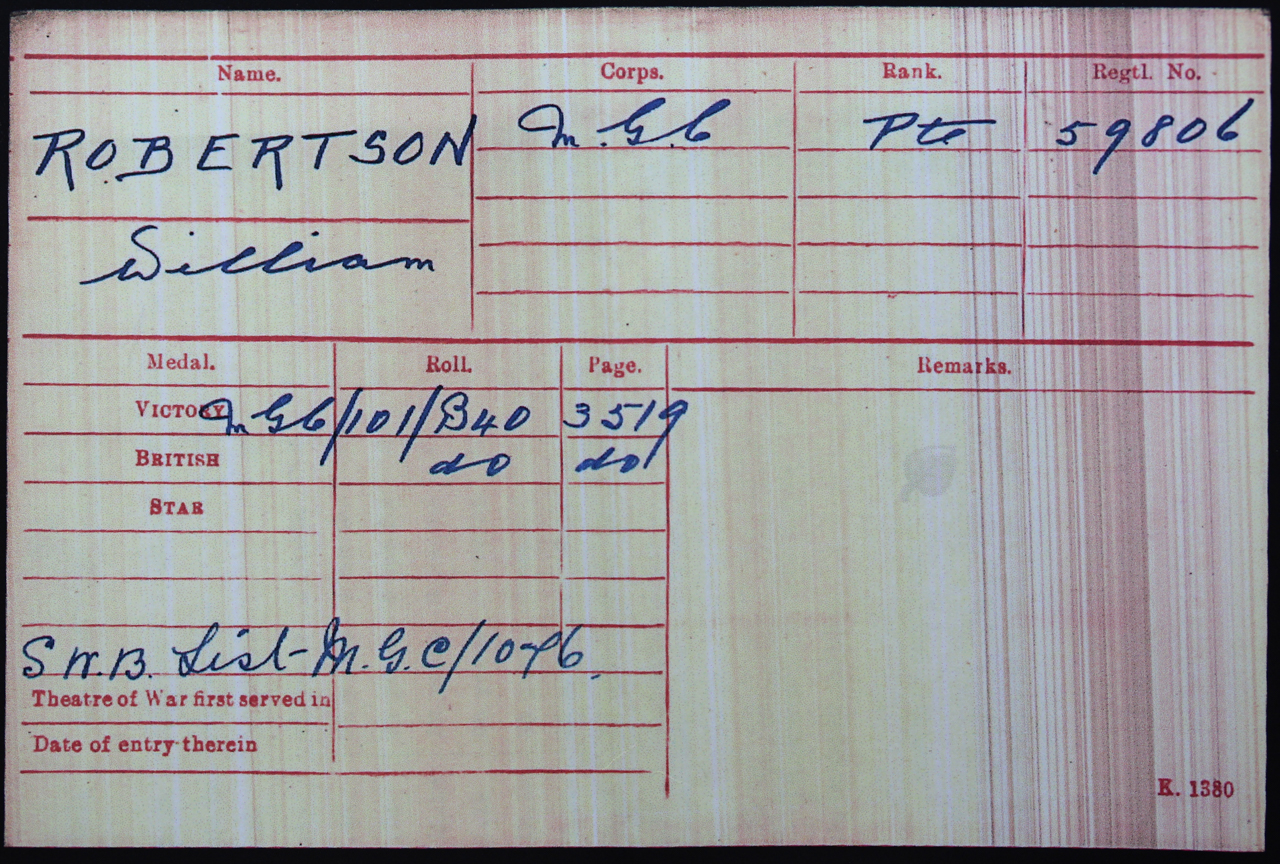 Name. Corps. Rank. Regtl. No.
ROBERTSON M.G.C Pte 59806
William
Medal. Roll. Page. Remarks.
VICTORY MGC/101/B40 3519
BRITISH do do
STAR
S.W.B. List- M.G.C/10-96.
Theatre of War first served in
Date of entry therein
K. 1380